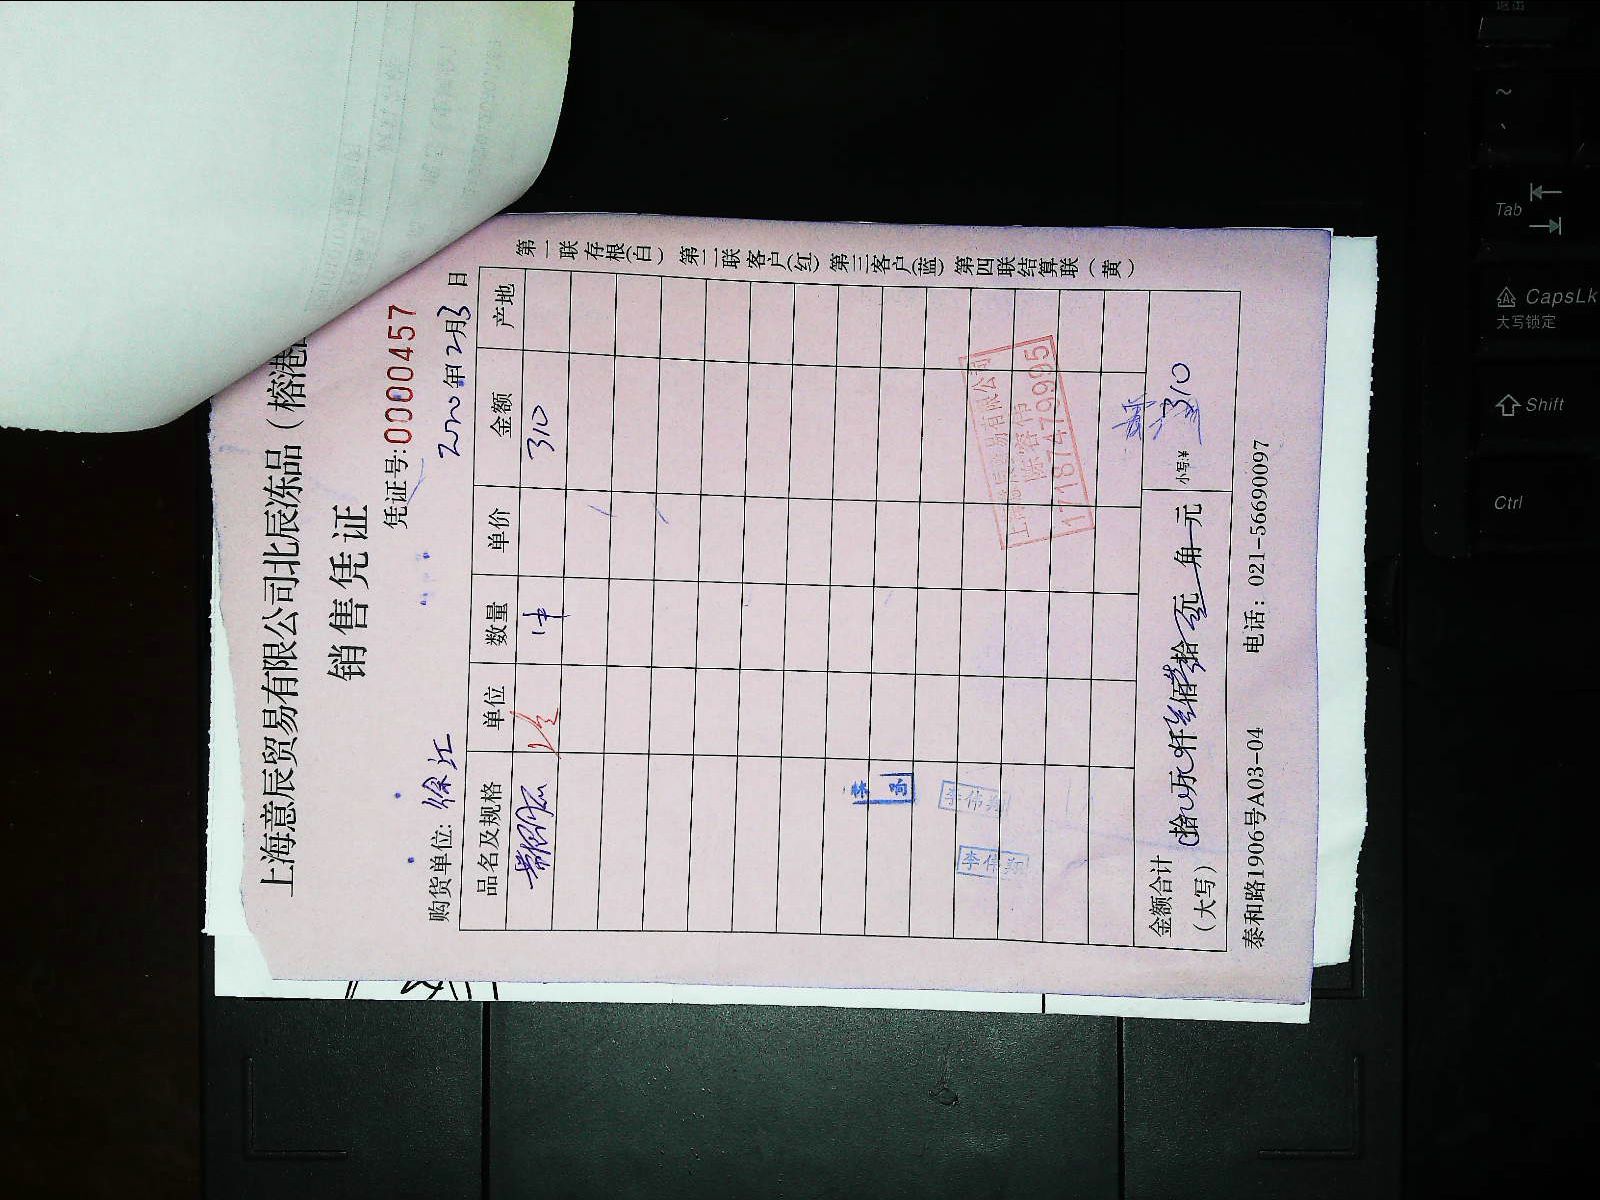 上海意辰贸易有限公司北辰冻品（榕港
销售凭证
凭证号:0000457
购货单位: 徐江 2020年2月3日
品名及规格 单位 数量 单价 金额 产地
1件 310
上海意辰贸易有限公司
陈容伟
17187479995
李伟翔
李伟翔
金额合计
（大写） 拾 万 仟 叁佰 壹拾 元 角 元 小写:¥ 310
泰和路1906号A03-04 电话: 021-56690097
第一联存根(白) 第二联客户(红) 第三客户(蓝) 第四联结算联(黄)
Tab
CapsLk
大写锁定
Shift
Ctrl